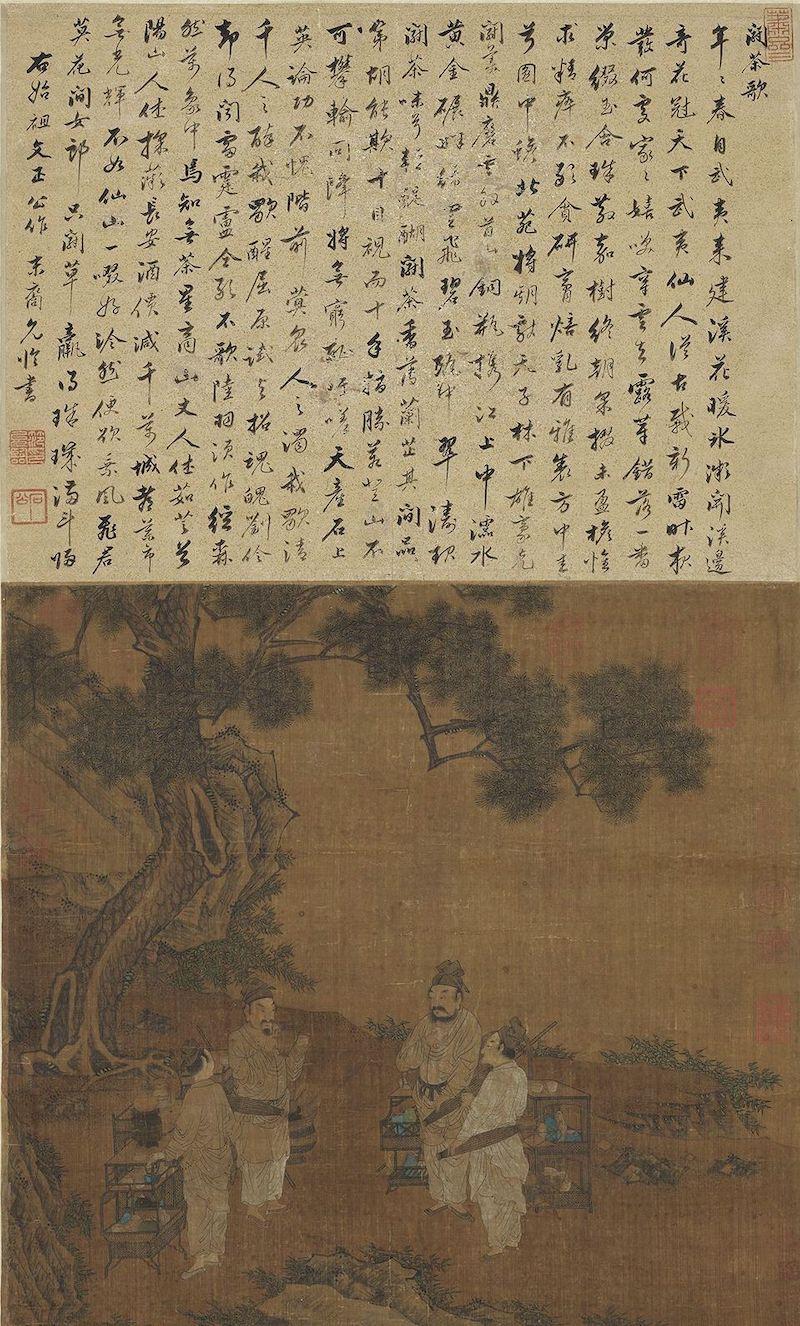 鬬茶歌
年々春自武夷来建溪花暖氷漸開溪邊
奇花冠天下武夷仙人從古栽新雷昨夜
發何處家々嬉咲穿雲去露芽錯落一番
榮綴玉含珠散嘉樹終朝采掇未盈襜惟
求精粹不敢貪研膏焙乳有雅製方中圭
兮圓中蟾北苑將期獻天子林下雄豪先
鬬美鼎磨雲外首山銅瓶携江上中濡水
黃金碾畔緑塵飛碧玉甌中翠濤起
鬬茶味兮輕醍醐鬬茶香兮薄蘭芷其間品
第胡能欺十目視而十手指勝若登山不
可攀輸同降將無窮恥吁嗟天產石上
英論功不愧階前蓂衆人之濁我歌清
千人之醉我歌醒屈原試與招魂魄劉伶
却得聞雷霆盧仝敢不歌陸羽須作經森
然萬象中焉知無茶星商山丈人休茹芝首
陽山人休採薇長安酒價減千萬城都藥市
無光輝不如仙山一啜好泠然便欲乘風飛君
莫花間女郎只鬬草贏得珠璣滿斗歸
右始祖文正公作 末裔允臨書